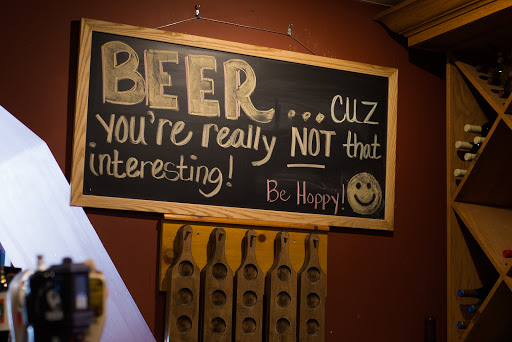 BEER ... cuz
you're really NOT that
interesting!
Be Hoppy!